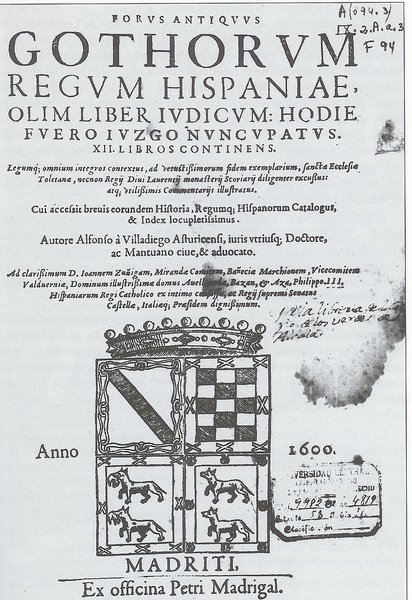 FORVS ANTIQVVS
GOTHORVM
REGVM HISPANIAE,
OLIM LIBER IVDICVM: HODIE
FVERO IVZGO NVNCVPATVS.
XII. LIBROS CONTINENS.
Legumq; omnium integros contextus, ad vetustissimorum fidem exemplarium, sanctæ Ecclesiæ
Toletanæ, necnon Regij Diui Laurentij monasterij Scoriarij diligenter excussus:
atq; vtilissimis Commentarijs illustratus.
Cui accessit breuis eorundem Historia, Regumq; Hispanorum Catalogus,
& Index locupletissimus.
Autore Alfonso à Villadiego Asturicensi, iuris vtriusq; Doctore,
ac Mantuano ciue, & aduocato.
Ad clarissimum D. Ioannem Zuñigam, Miranda Comitem, Bañecia Marchionem, Vicecomitem
Valduernia, Dominum illustrissima domus Bazan, & Aza, Philippo III.
Hispaniarum Regi Catholico ex intimo ac Regij supremi Senatus
Castella, Italiaq; Præsidem dignissimum.
Anno 1600.
MADRITI,
Ex officina Petri Madrigal.
A(094.3)
IX.2.A.a.3
F 94
9982
4819